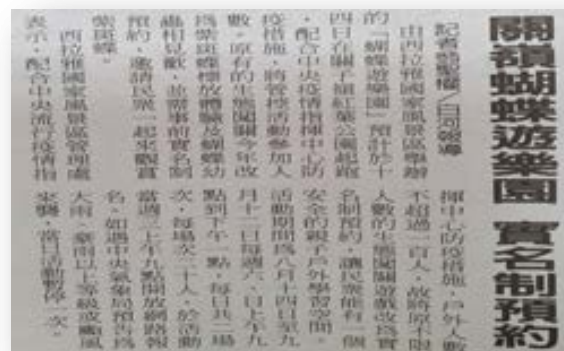 關嶺蝴蝶遊樂園 實名制預約
白河報導
由西拉雅國家風景區舉辦
的「蝴蝶遊樂園」預計於十
四日在關子嶺紅葉公園起跑
，配合中央疫情指揮中心防
疫措施，將管控活動參加人
數，原有的生態闖關今年改
為紫斑蝶標放體驗及蝴蝶幼
蟲相見歡，並需事前實名制
預約，邀請民眾一起來觀賞
紫斑蝶。
西拉雅國家風景區管理處
表示，配合中央流行疫情指
揮中心防疫措施，戶外人數
不超過一百人，故將原不限
人數的生態闖關遊戲改為實
名制預約，讓民眾能有一個
安全的親子戶外學習空間。
活動期間為八月十四日至九
月十二日每週六、日上午九
點到下午一點，每日共二場
次，每場次二十人，於活動
當週三上午九點開放網路報
名，如遇中央氣象局預告為
大雨、豪雨以上等級或颱風
來襲，當日活動暫停一次。